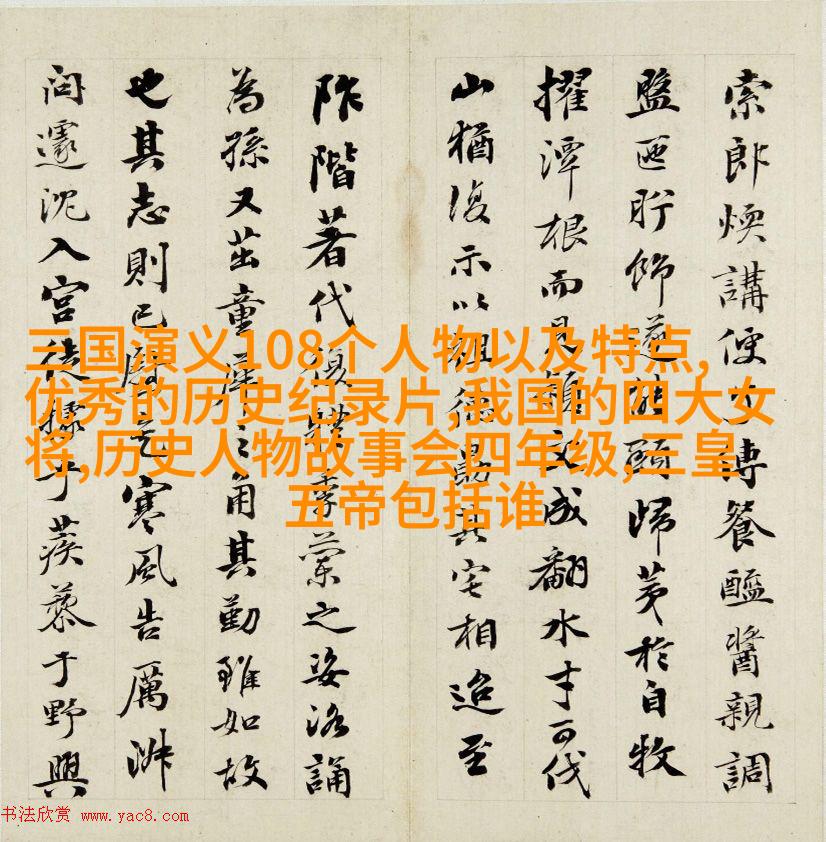 三国演义108个人物以及特点,
优秀的历史纪录片,我国的四大女
将,历史人物故事会四年级,三皇
五帝包括谁
索郎煥講便餐醯醬親調
盥匜貯飾頤歸荑於自牧
擢潭根而見文成翻水才可伐
山猶復示以德勗其宅相迨至
阼階著代蘭之姿洛誦
為孫又茁童之角其勤雖如故
也其志則已寒風告厲
問遽沈入宮徒據于蒺藜于野興
书法欣赏 www.yac8.com